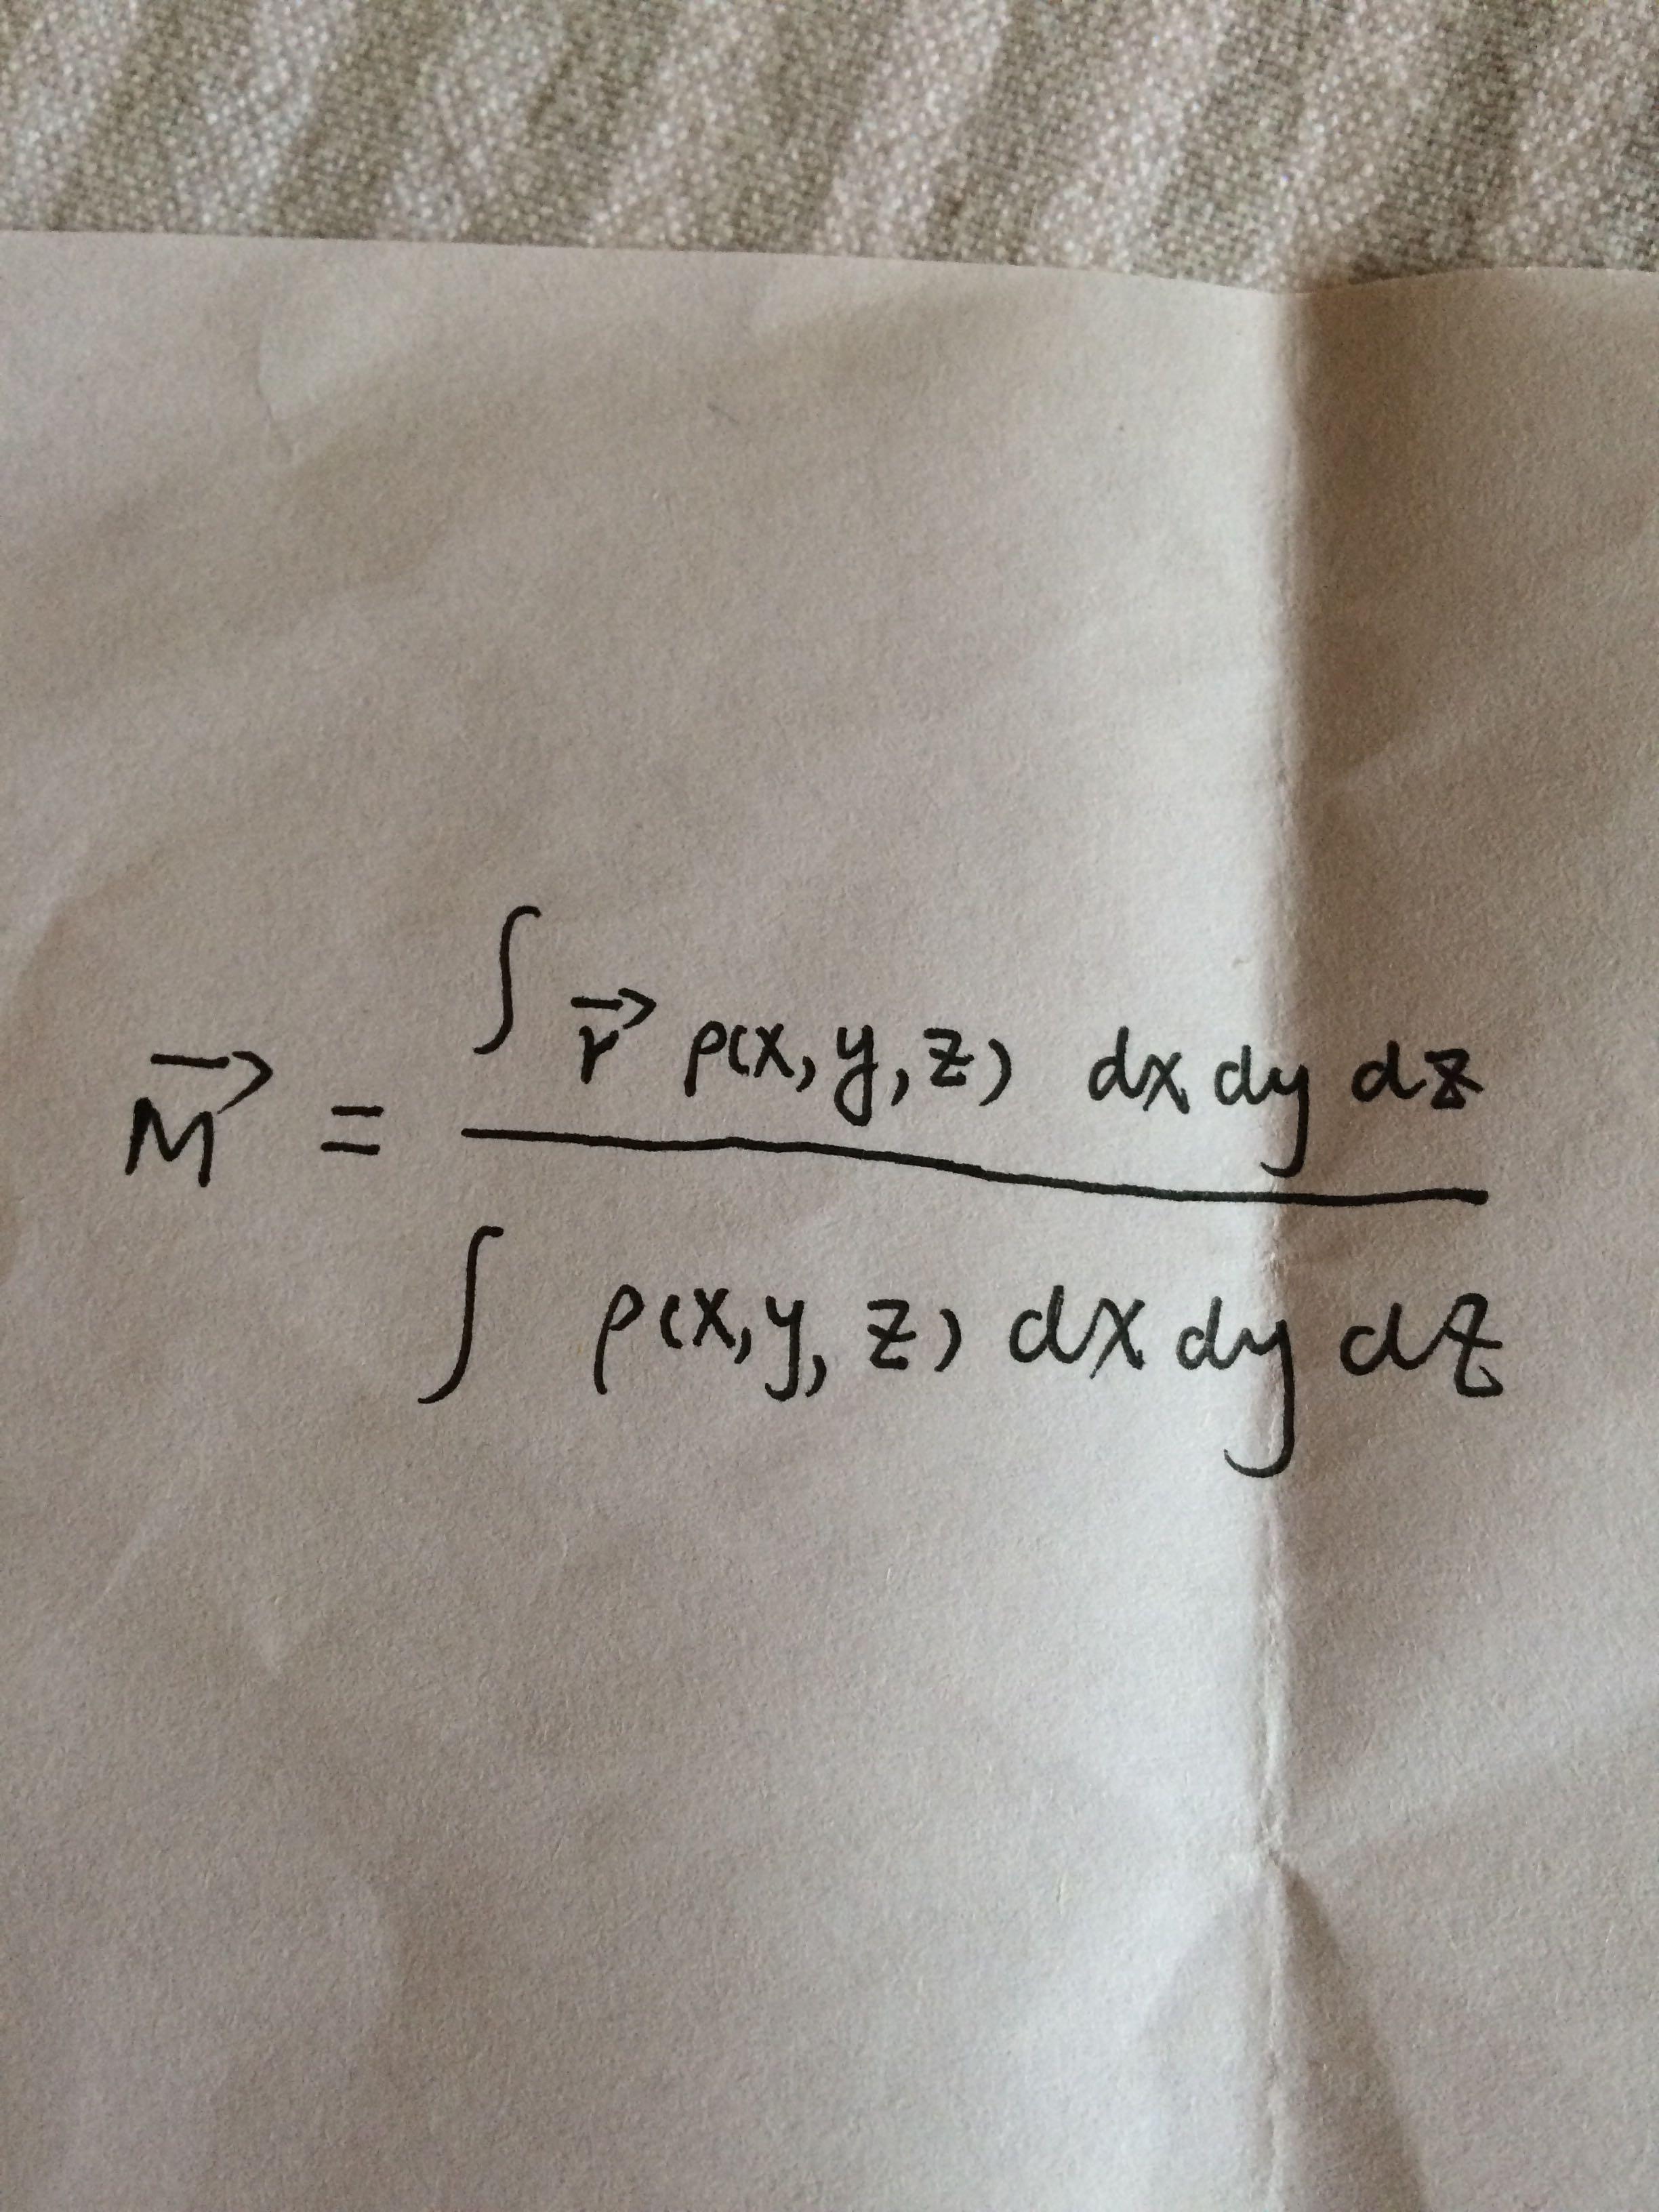 M⃗ = ∫ r⃗ ρ(x, y, z) dx dy dz
∫ ρ(x, y, z) dx dy dz